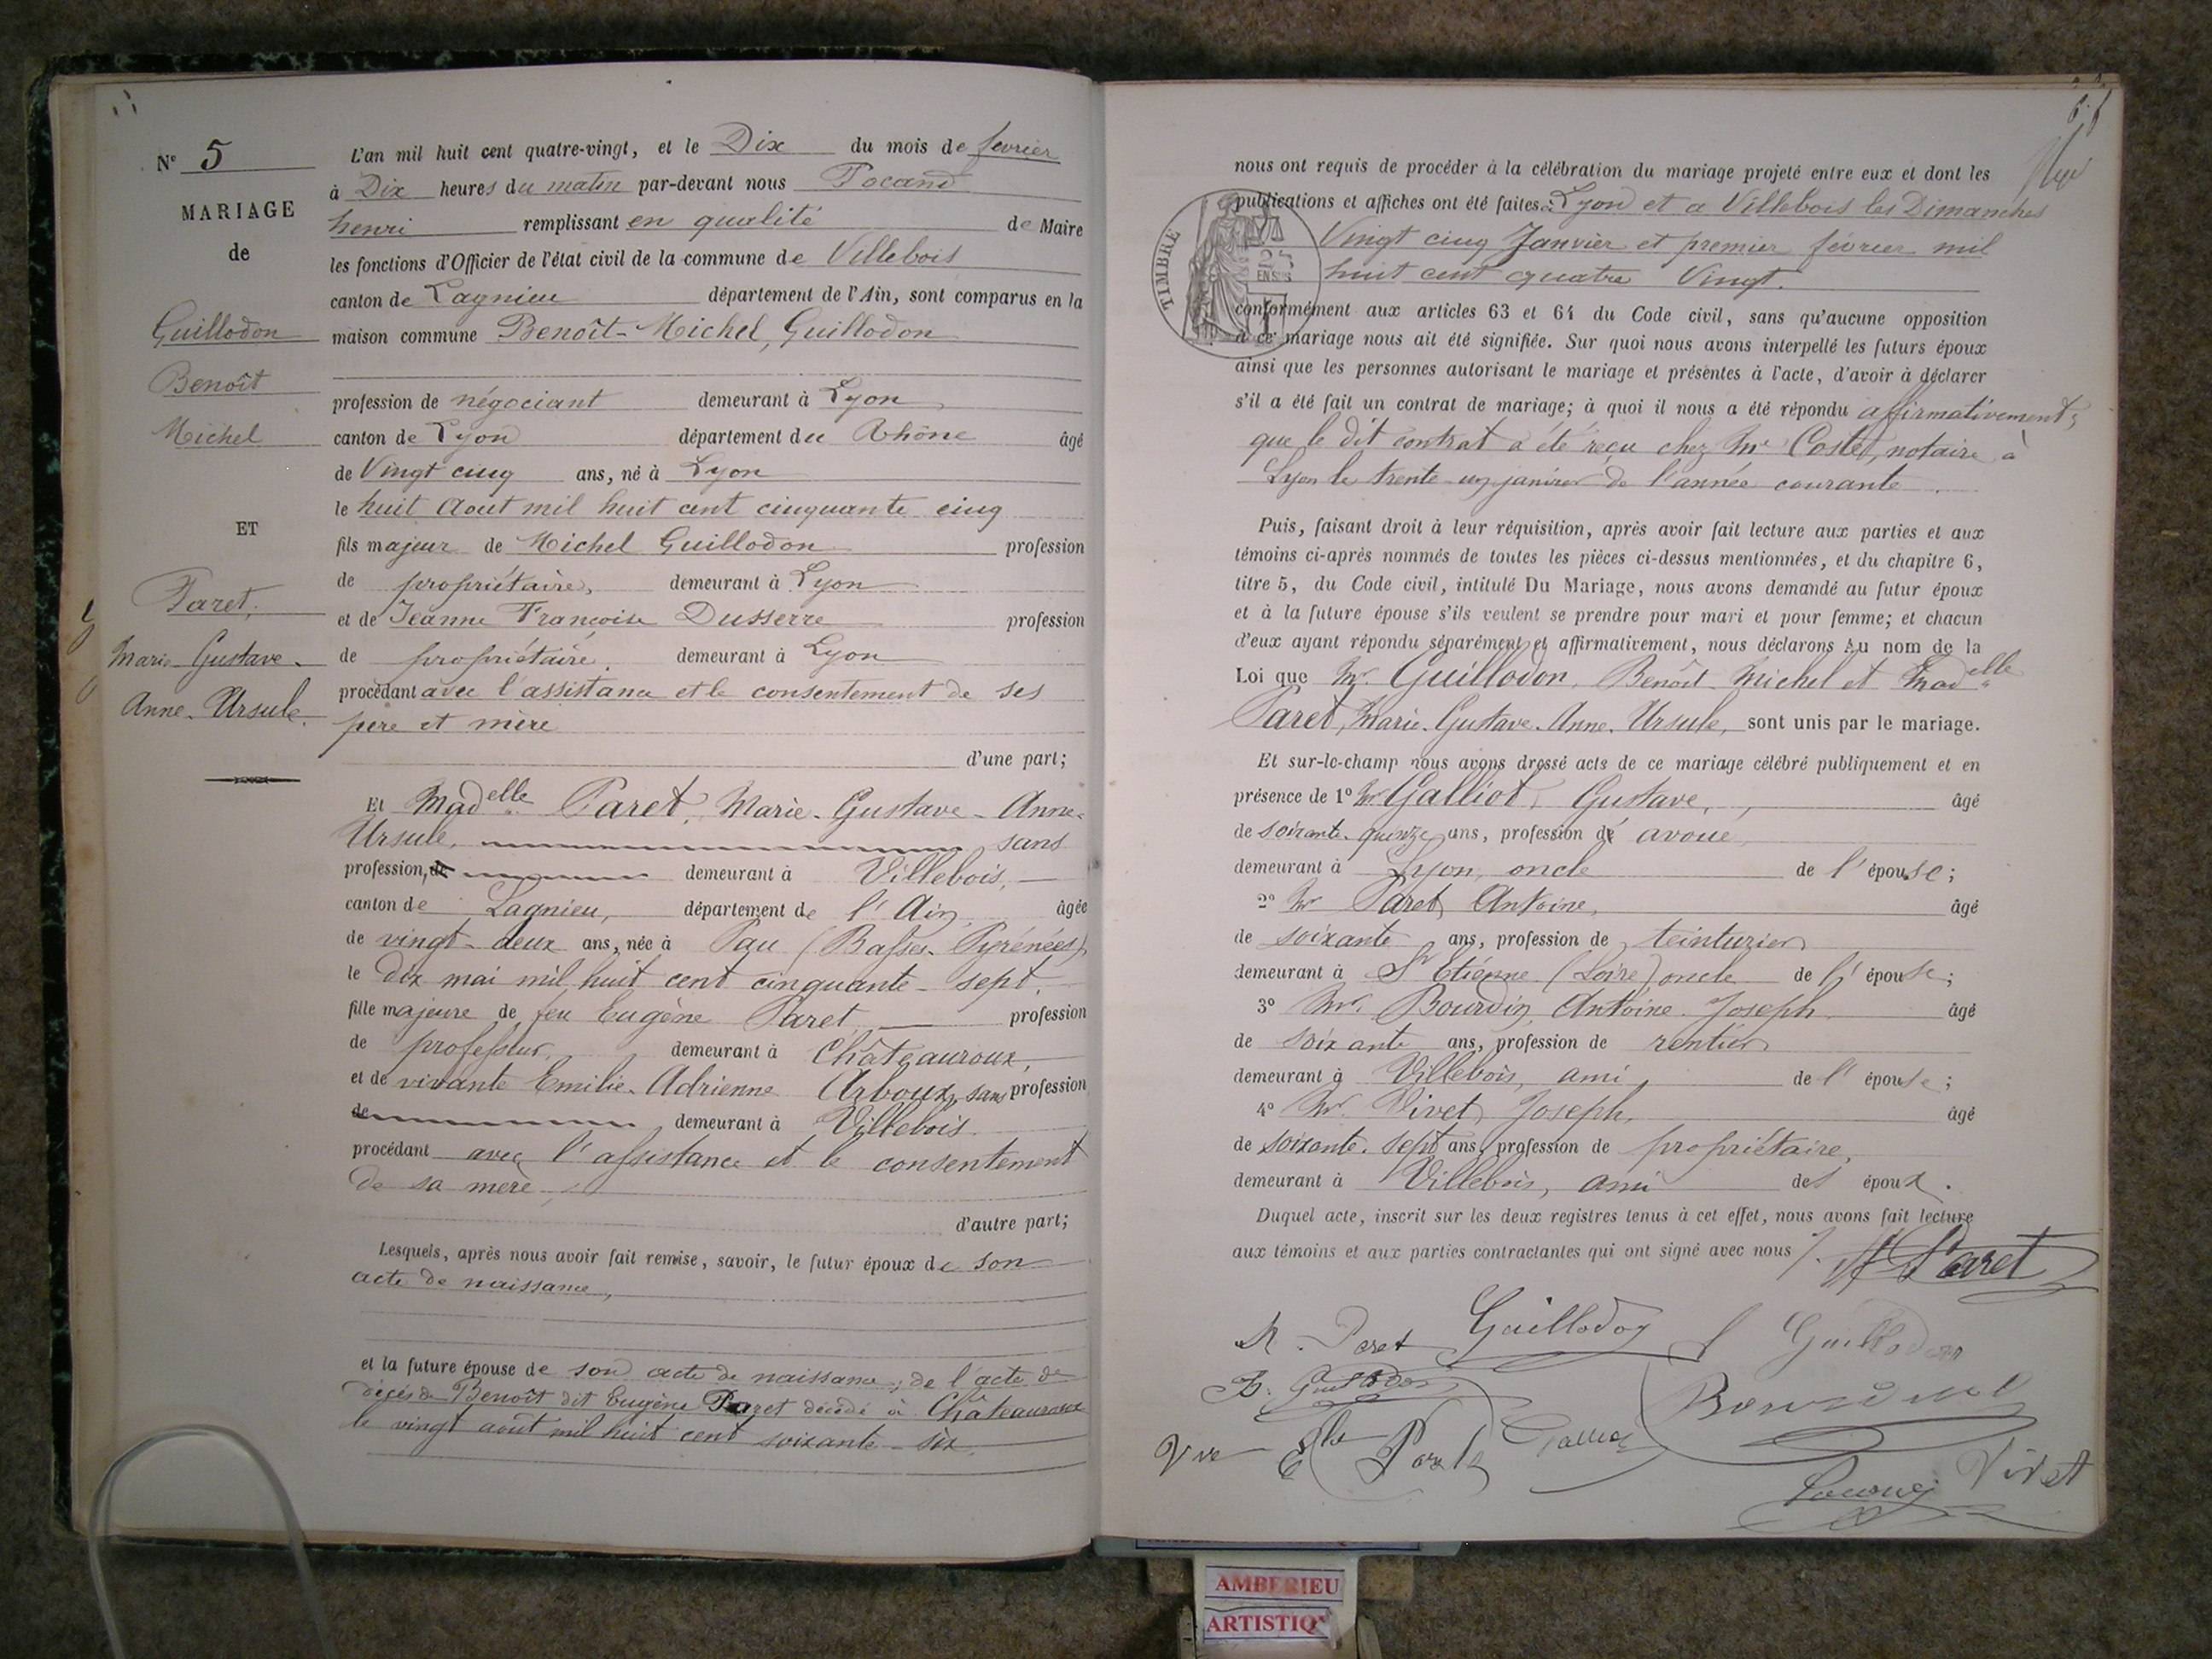 N° 5
MARIAGE
de
Guillodon
Benoît
Michel
ET
Paret,
Marie-Gustave-
Anne-Ursule.
L'an mil huit cent quatre-vingt, et le Dix du mois de fevrier
à Dix heures du matin par-devant nous Pocand
henri remplissant en qualité de Maire
les fonctions d'Officier de l'état civil de la commune de Villebois
canton de Lagnieu département de l'Ain, sont comparus en la
maison commune Benoît-Michel, Guillodon
profession de négociant demeurant à Lyon
canton de Lyon département du Rhône âgé
de Vingt cinq ans, né à Lyon
le huit Aout mil huit cent cinquante cinq
fils majeur de Michel Guillodon profession
de propriétaire, demeurant à Lyon
et de Jeanne Françoise Dusserre profession
de propriétaire, demeurant à Lyon
procédant avec l'assistance et le consentement de ses
père et mère
d'une part;
Et Madelle Paret, Marie-Gustave-Anne-
Ursule, sans
profession, de demeurant à Villebois,
canton de Lagnieu, département de l'Ain, âgée
de vingt-deux ans, née à Pau (Basses-Pyrénées)
le dix mai mil huit cent cinquante-sept.
fille majeure de feu Eugène Paret profession
de professeur, demeurant à Châteauroux,
et de vivante Emilie-Adrienne Arboux, sans profession
de demeurant à Villebois.
procédant avec l'assistance et le consentement
de sa mère
d'autre part;
Lesquels, après nous avoir fait remise, savoir, le futur époux de son
acte de naissance,
et la future épouse de son acte de naissance; de l'acte de
décès de Benoît dit Eugène Paret décédé à Châteauroux
le vingt août mil huit cent soixante-six.
nous ont requis de procéder à la célébration du mariage projeté entre eux et dont les
publications et affiches ont été faites à Lyon et a Villebois les Dimanches
Vingt cinq Janvier et premier février mil
huit cent quatre Vingt.
TIMBRE
conformément aux articles 63 et 64 du Code civil, sans qu'aucune opposition
à ce mariage nous ait été signifiée. Sur quoi nous avons interpellé les futurs époux
ainsi que les personnes autorisant le mariage et présentes à l'acte, d'avoir à déclarer
s'il a été fait un contrat de mariage; à quoi il nous a été répondu affirmativement;
que le dit contrat a été reçu chez Me Coste, notaire à
Lyon le trente-un janvier de l'année courante.
Puis, faisant droit à leur réquisition, après avoir fait lecture aux parties et aux
témoins ci-après nommés de toutes les pièces ci-dessus mentionnées, et du chapitre 6,
titre 5, du Code civil, intitulé Du Mariage, nous avons demandé au futur époux
et à la future épouse s'ils veulent se prendre pour mari et pour femme; et chacun
d'eux ayant répondu séparément et affirmativement, nous déclarons Au nom de la
Loi que Mr. Guillodon, Benoît-Michel et Madelle
Paret, Marie-Gustave-Anne-Ursule, sont unis par le mariage.
Et sur-le-champ nous avons dressé acte de ce mariage célébré publiquement et en
présence de 1° Mr Galliot, Gustave, âgé
de soixante-quinze ans, profession de avoué
demeurant à Lyon, oncle de l'épouse;
2° Mr Paret, Antoine, âgé
de soixante ans, profession de teinturier
demeurant à St Etienne (Loire) oncle de l'épouse;
3° Mr. Bourdin, Antoine-Joseph âgé
de soixante ans, profession de rentier
demeurant à Villebois, ami de l'épouse;
4° Mr. Vivet, Joseph, âgé
de soixante-sept ans, profession de propriétaire,
demeurant à Villebois, ami des époux.
Duquel acte, inscrit sur les deux registres tenus à cet effet, nous avons fait lecture
aux témoins et aux parties contractantes qui ont signé avec nous Paret
Paret Guillodon Guillodon
B. Guillodon
Vve Paret Vivet
AMBERIEU
ARTISTIQ